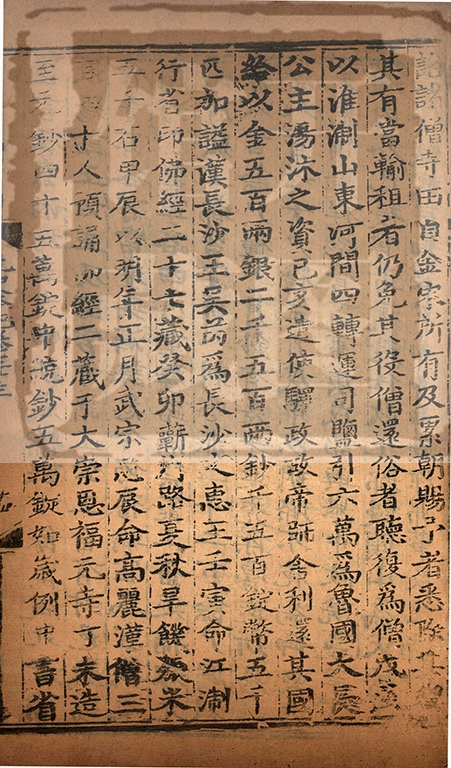 詔諸僧寺田自金宋所有及累朝賜予者悉除其租
其有當輸租者仍免其役僧還俗者聽復爲僧戊寅
以淮浙山東河間四轉運司鹽引六萬爲魯國大長
公主湯沐之資己亥遣使驛致故帝師舍利還其國
給以金五百兩銀二千五百兩鈔千五百錠幣五千
匹加謚漢長沙王吳芮爲長沙文惠王壬寅命江浙
行省印佛經二十七藏癸卯蘄州路夏秋旱饑發米
五千石甲辰以明年正月武宗忌辰命高麗漢僧三
百四十人預誦佛經二藏于大崇恩福元寺丁未造
至元鈔四十五萬錠中統鈔五萬錠如歲例中書省